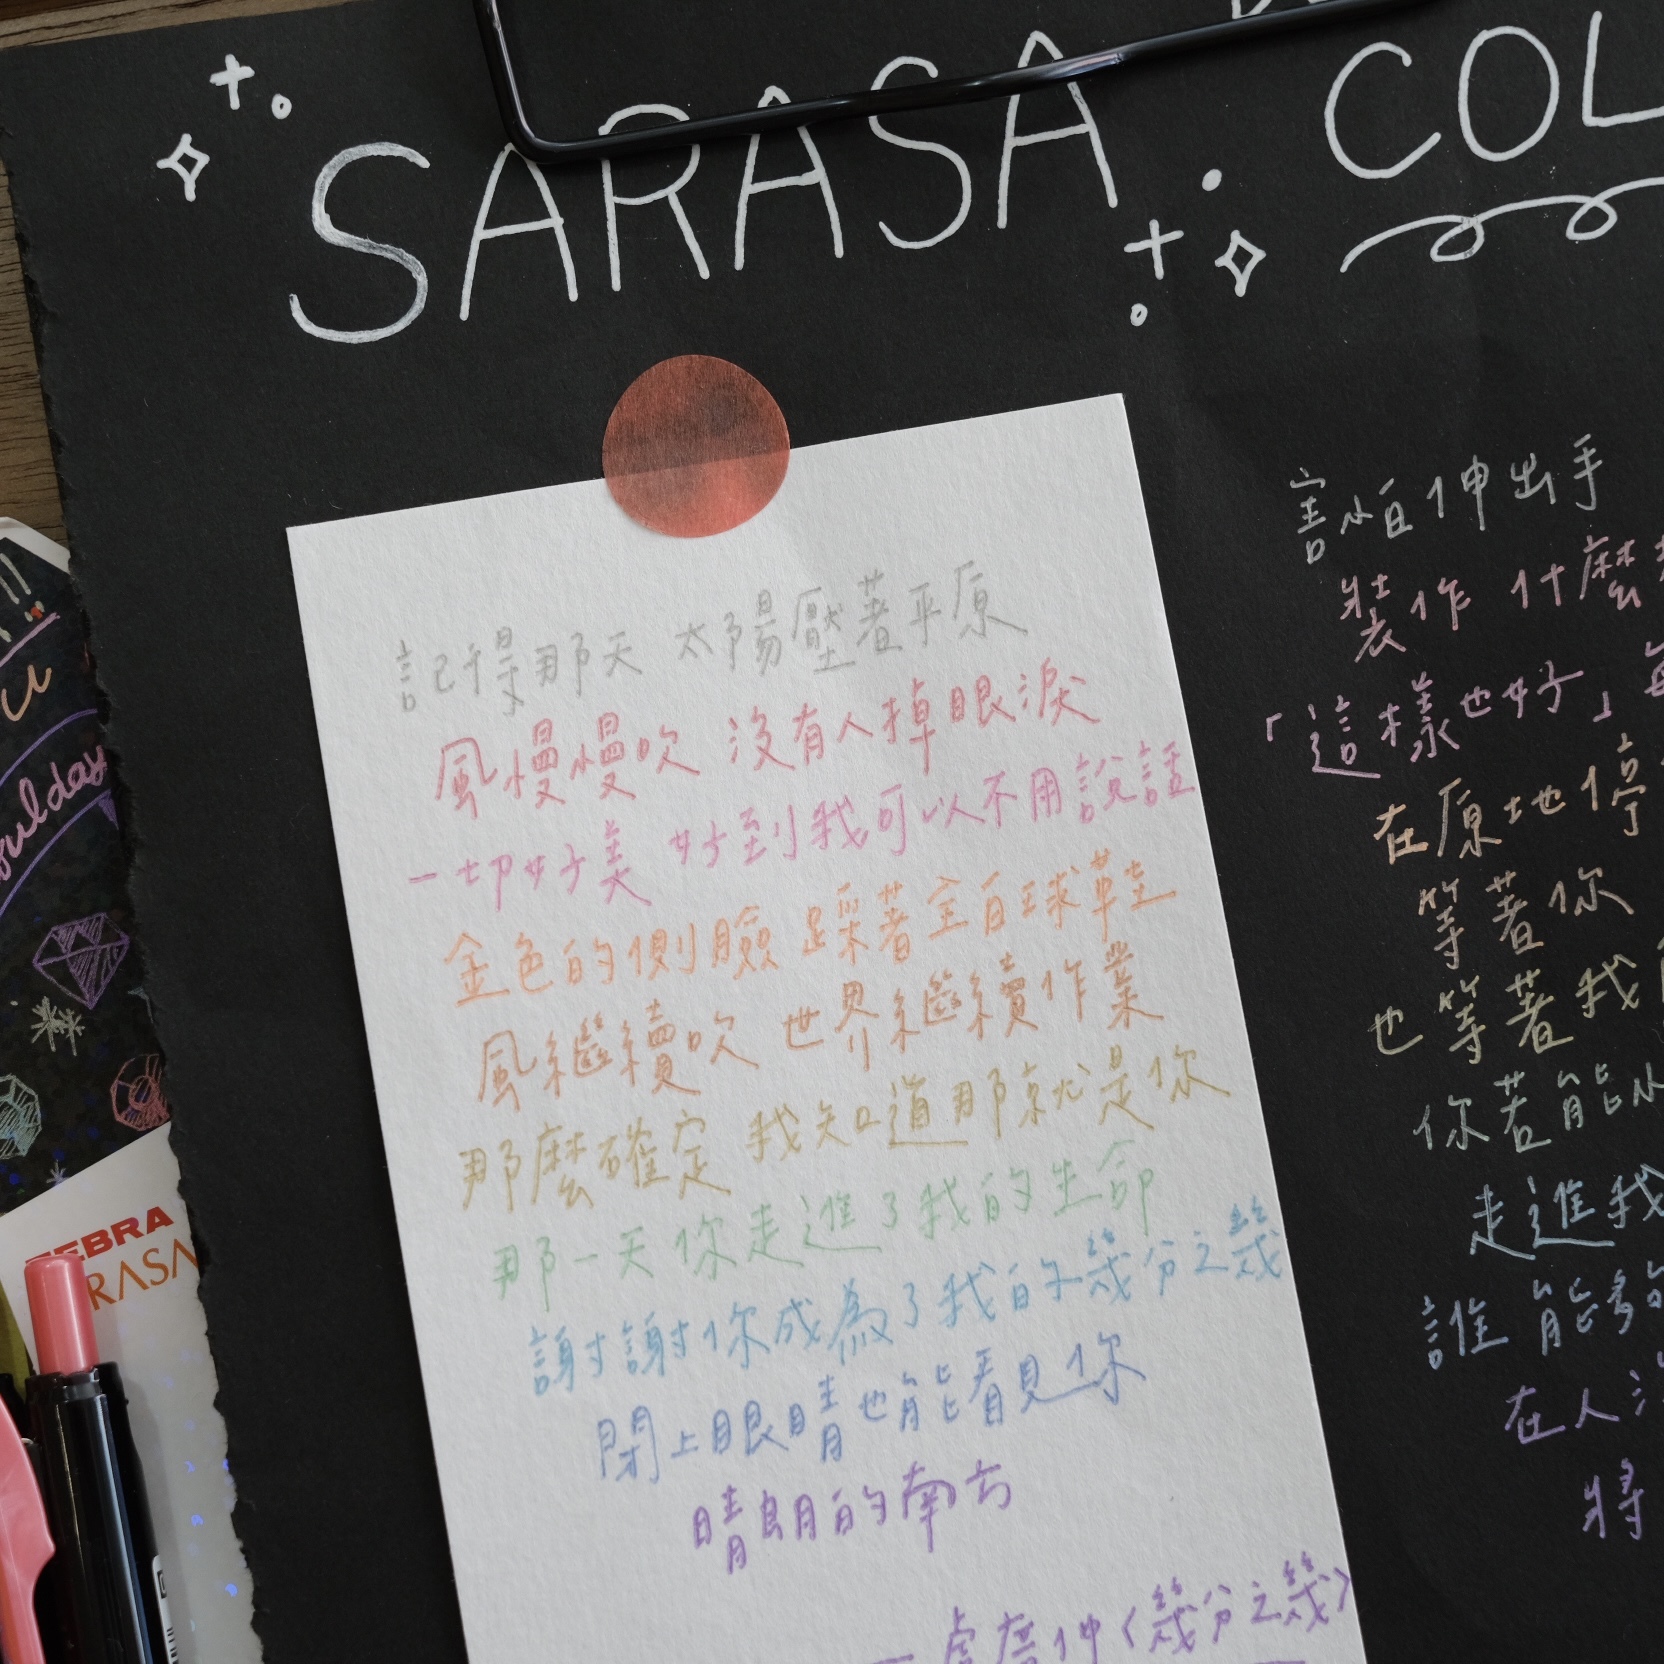 SARASA . COL
記得那天 太陽壓著平原
風慢慢吹 沒有人掉眼淚
一切好美 好到我可以不用說話
金色的側臉 踩著全白球鞋
風繼續吹 世界繼續作業
那麼確定 我知道那就是你
那一天你走進了我的生命
謝謝你成為了我的幾分之幾
閉上眼睛也能看見你
晴朗的南方
— 盧廣仲〈幾分之幾〉
害怕伸出手
裝作 什麼
「這樣也好」每
在原地停
等著你
也等著我
你若能
走進我
誰 能夠
在人
將
ZEBRA
RASA